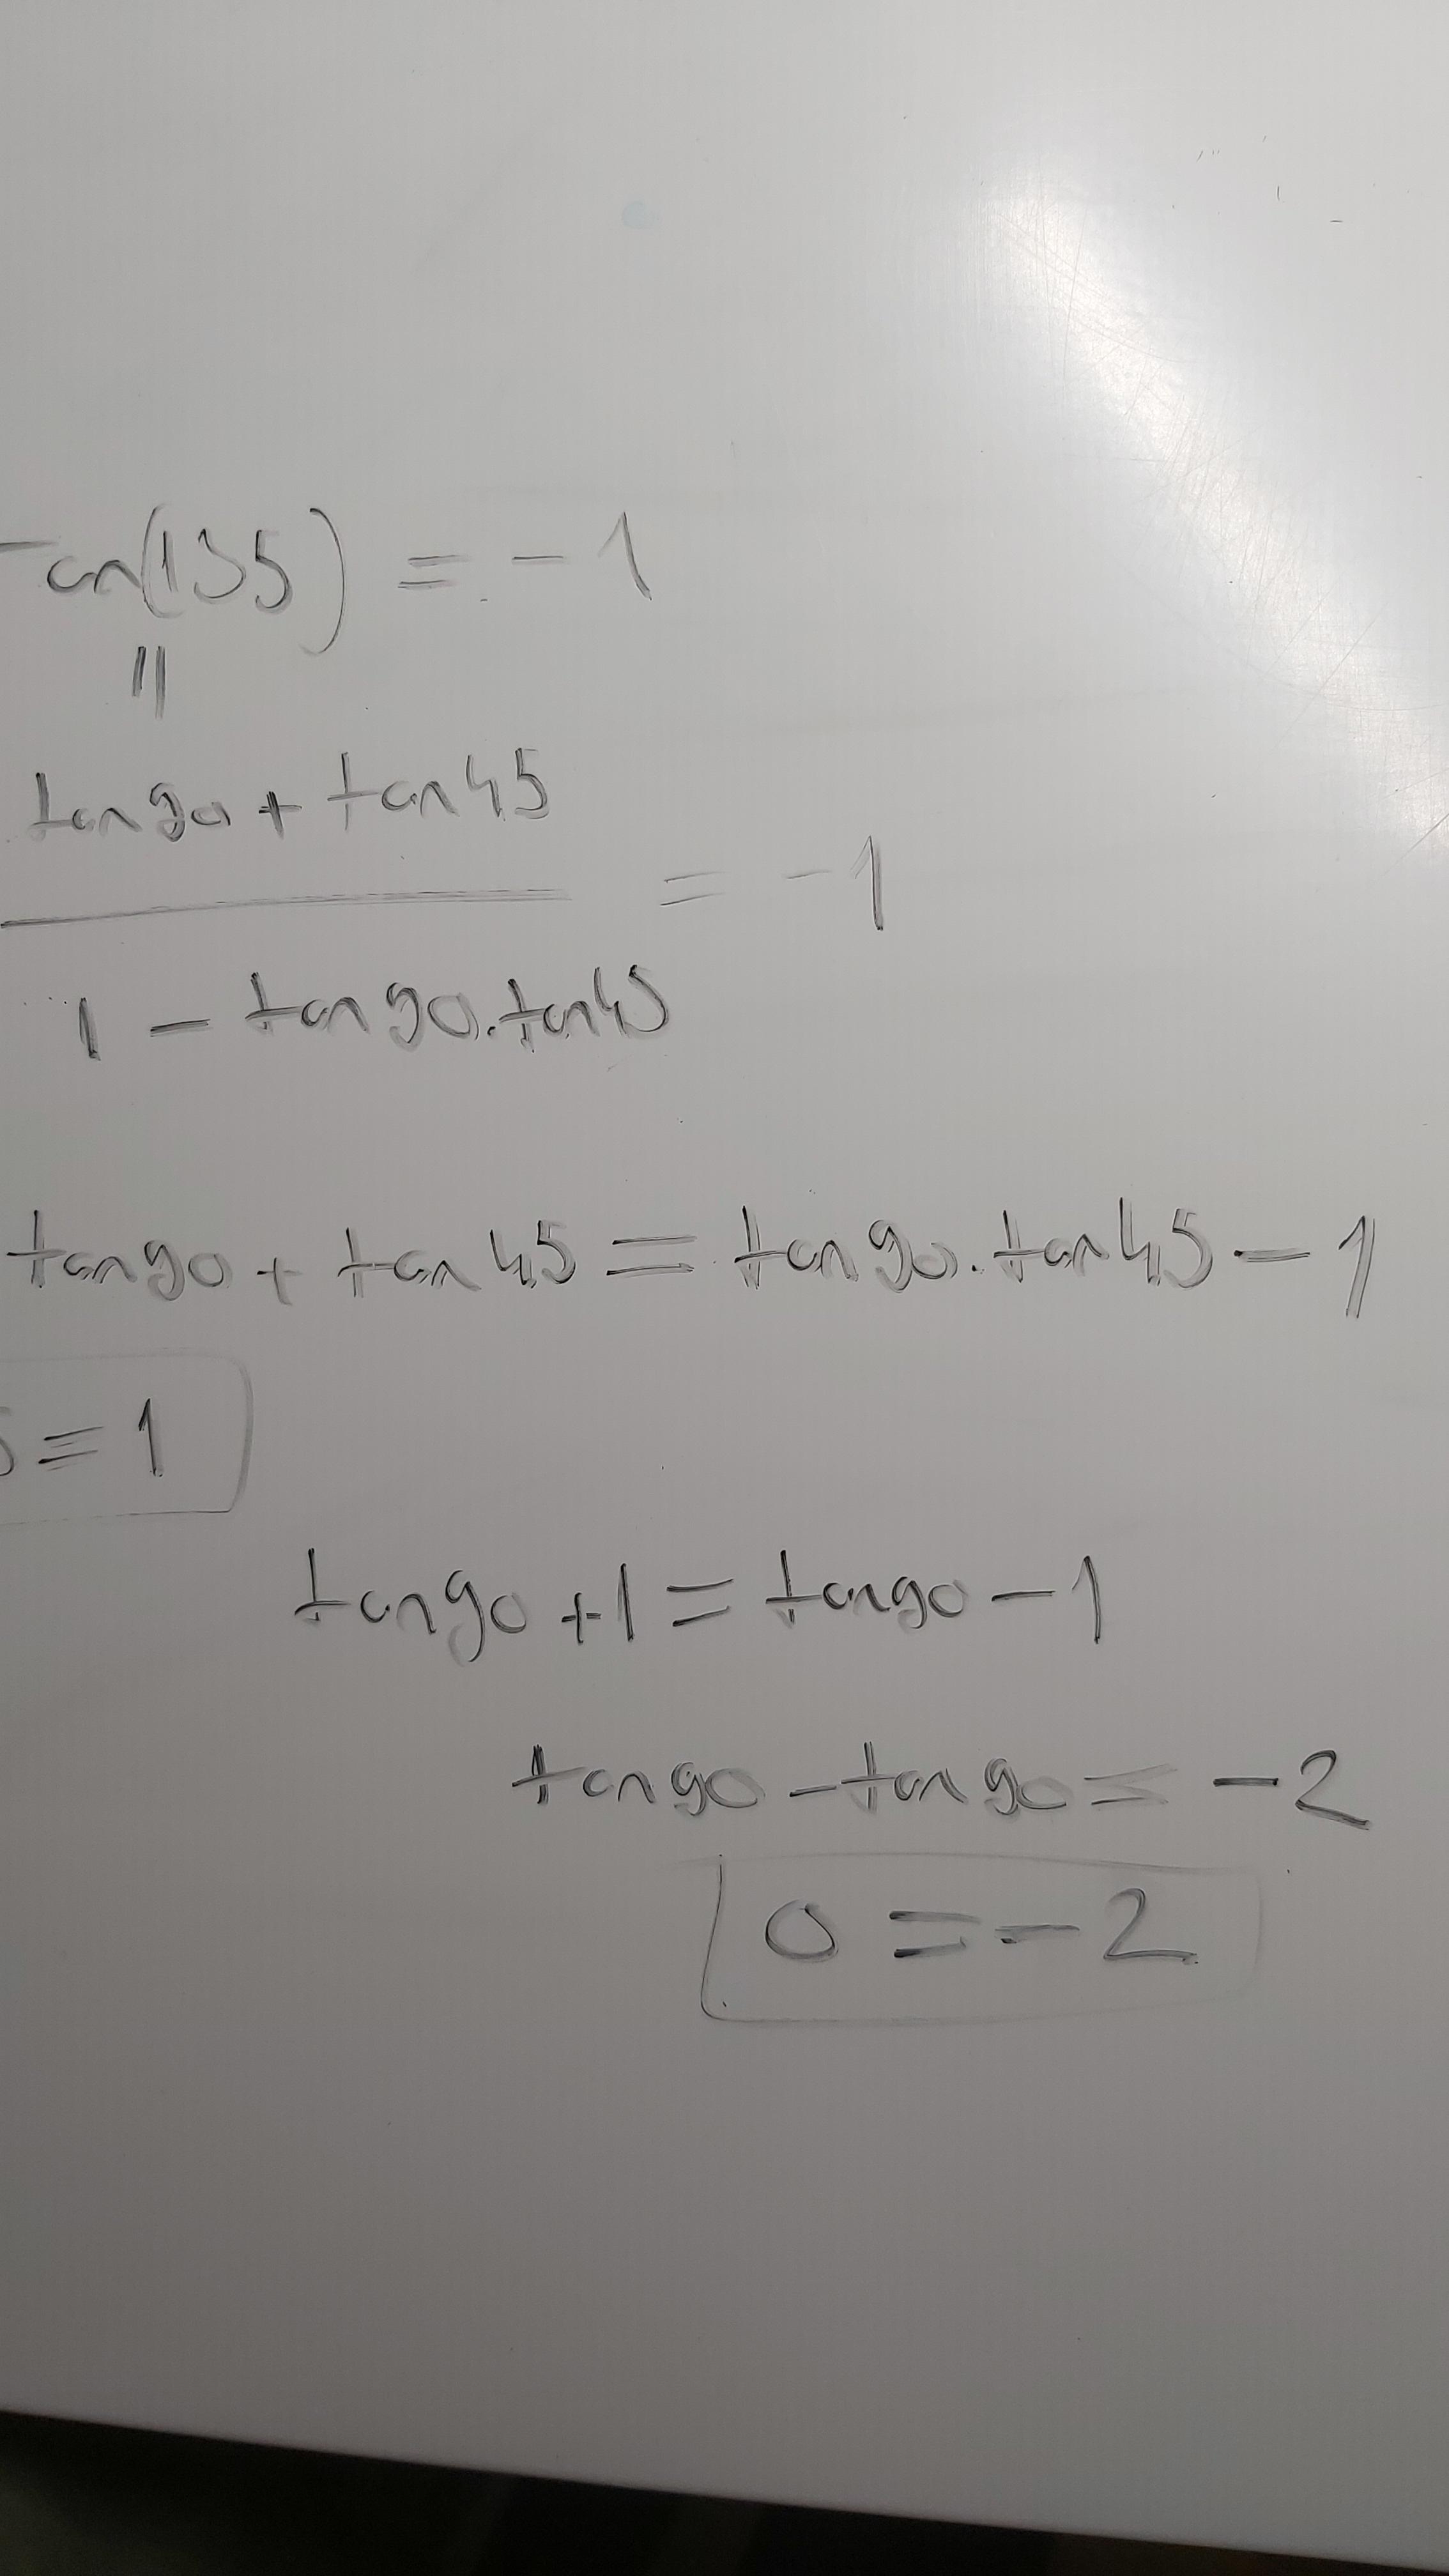 Tan(135) = -1
=
tan90 + tan45
= -1
1 - tan90.tan45
tan90 + tan45 = tan90.tan45 - 1
5 = 1
tan90 + 1 = tan90 - 1
tan90 - tan90 = -2
0 = -2